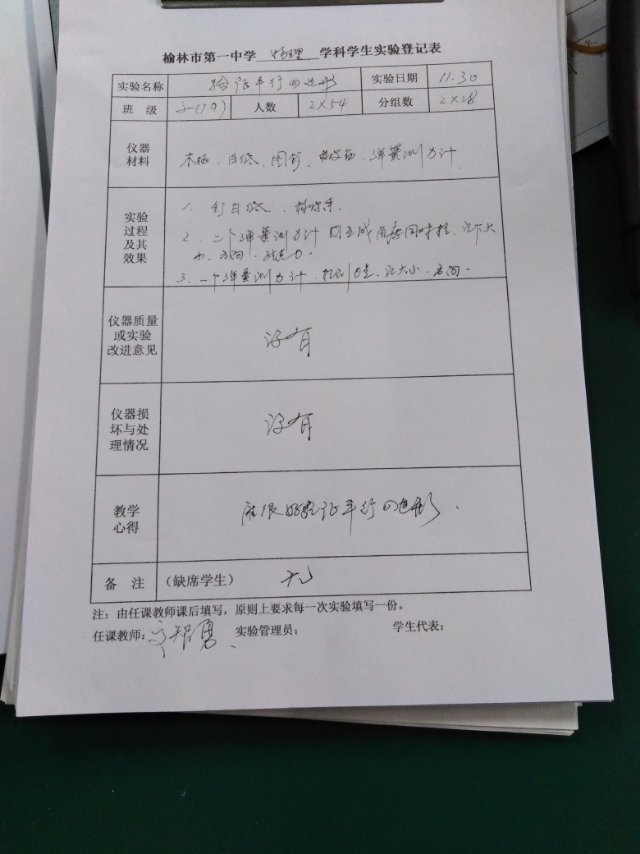 榆林市第一中学 物理 学科学生实验登记表
实验名称 验证平行四边形 实验日期 11.30
班 级 人数 2×54 分组数 2×28
仪器
材料
木板、白纸、图钉、橡皮筋、弹簧测力计
实验
过程
及其
效果
1、钉白纸、
2、二个弹簧测力计 记下大
小、方向、
3、一个弹簧测力计、记大小、方向。
仪器质量
或实验
改进意见
没有
仪器损
坏与处
理情况
没有
教学
心得
能很好验证平行四边形.
备 注 (缺席学生) 无
注：由任课教师课后填写，原则上要求每一次实验填写一份。
任课教师: 实验管理员: 学生代表: